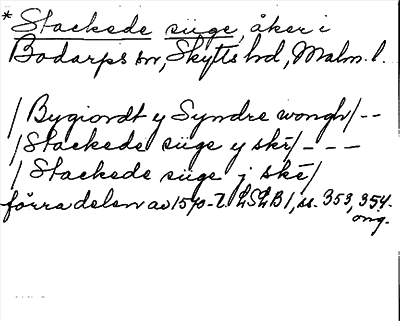 * Stackede siige, åker i
Bodarps sn, Skytts hd, Malm. l.
/Bygiordt y Syndre wongh/--
/Stackede siige y skr/---
/Stackede siige j ske/
förra delen av 15 LSLB1, ss. 353, 354.
omg.